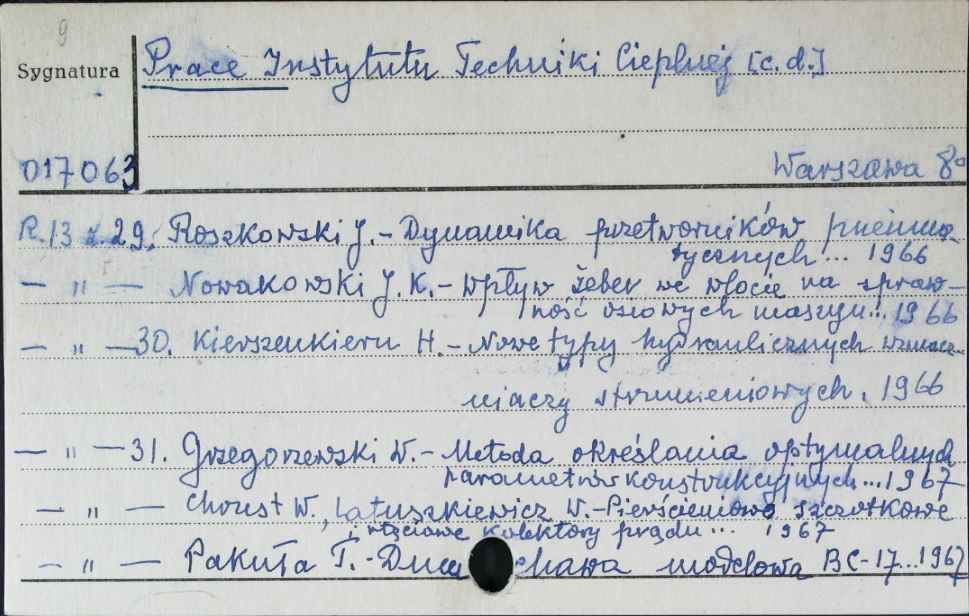 9
Sygnatura
Prace Instytutu Techniki Cieplnej [c.d.]
017063
Warszawa 8°
R.13 z. 29. Roszkowski J. - Dynamika przetworników pneuma-
tycznych... 1966
— " — Nowakowski J. K. - Wpływ żeber we wlocie na spraw-
ność osiowych maszyn... 1966
— " — 30. Kierszenkiern H. - Nowe typy hydraulicznych wzmac-
niaczy strumieniowych. 1966
— " — 31. Grzegorzewski W. - Metoda określania optymalnych
parametrów konstrukcyjnych... 1967
— " — Choust W., Latuszkiewicz W. - Pierścieniowo szczotkowe
i rtęciowe kolektory prądu... 1967
— " — Pakuła T. - chawa modelowa BC-17... 1967